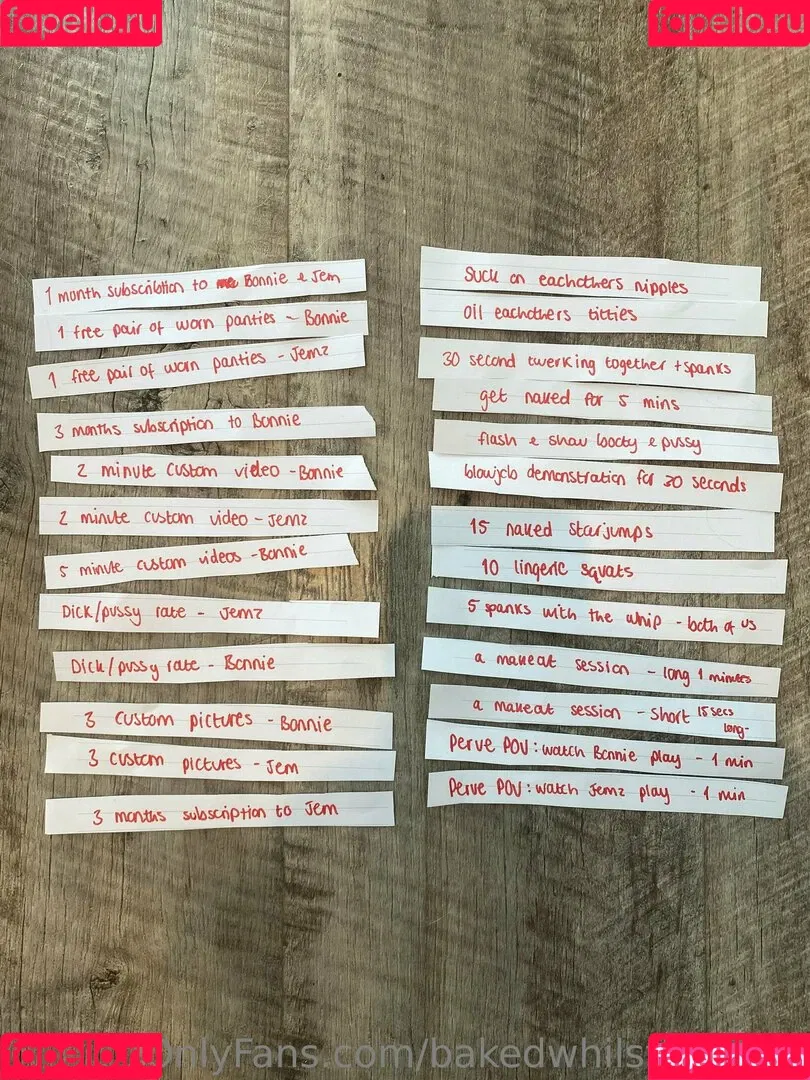 fapello.ru
fapello.ru
1 month subscribtion to me Bonnie & Jem
1 free pair of worn panties - Bonnie
1 free pair of worn panties - Jemz
3 months subscription to Bonnie
2 minute custom video - Bonnie
2 minute custom video - Jemz
5 minute custom videos - Bonnie
Dick/pussy rate - Jemz
Dick/pussy rate - Bonnie
3 custom pictures - Bonnie
3 custom pictures - Jem
3 months subscription to Jem
Suck on eachothers nipples
oil eachothers titties
30 second twerking together + spanks
get naked for 5 mins
flash & show booty & pussy
blowjob demonstration for 30 seconds
15 naked starjumps
10 lingerie squats
5 spanks with the whip - both of us
a makeout session - long 1 minutes
a makeout session - short 15 secs
long-
Perve POV: watch Bonnie play - 1 min
Perve POV: watch Jemz play - 1 min
fapello.ru
onlyFans.com/bakedwhils
fapello.ru